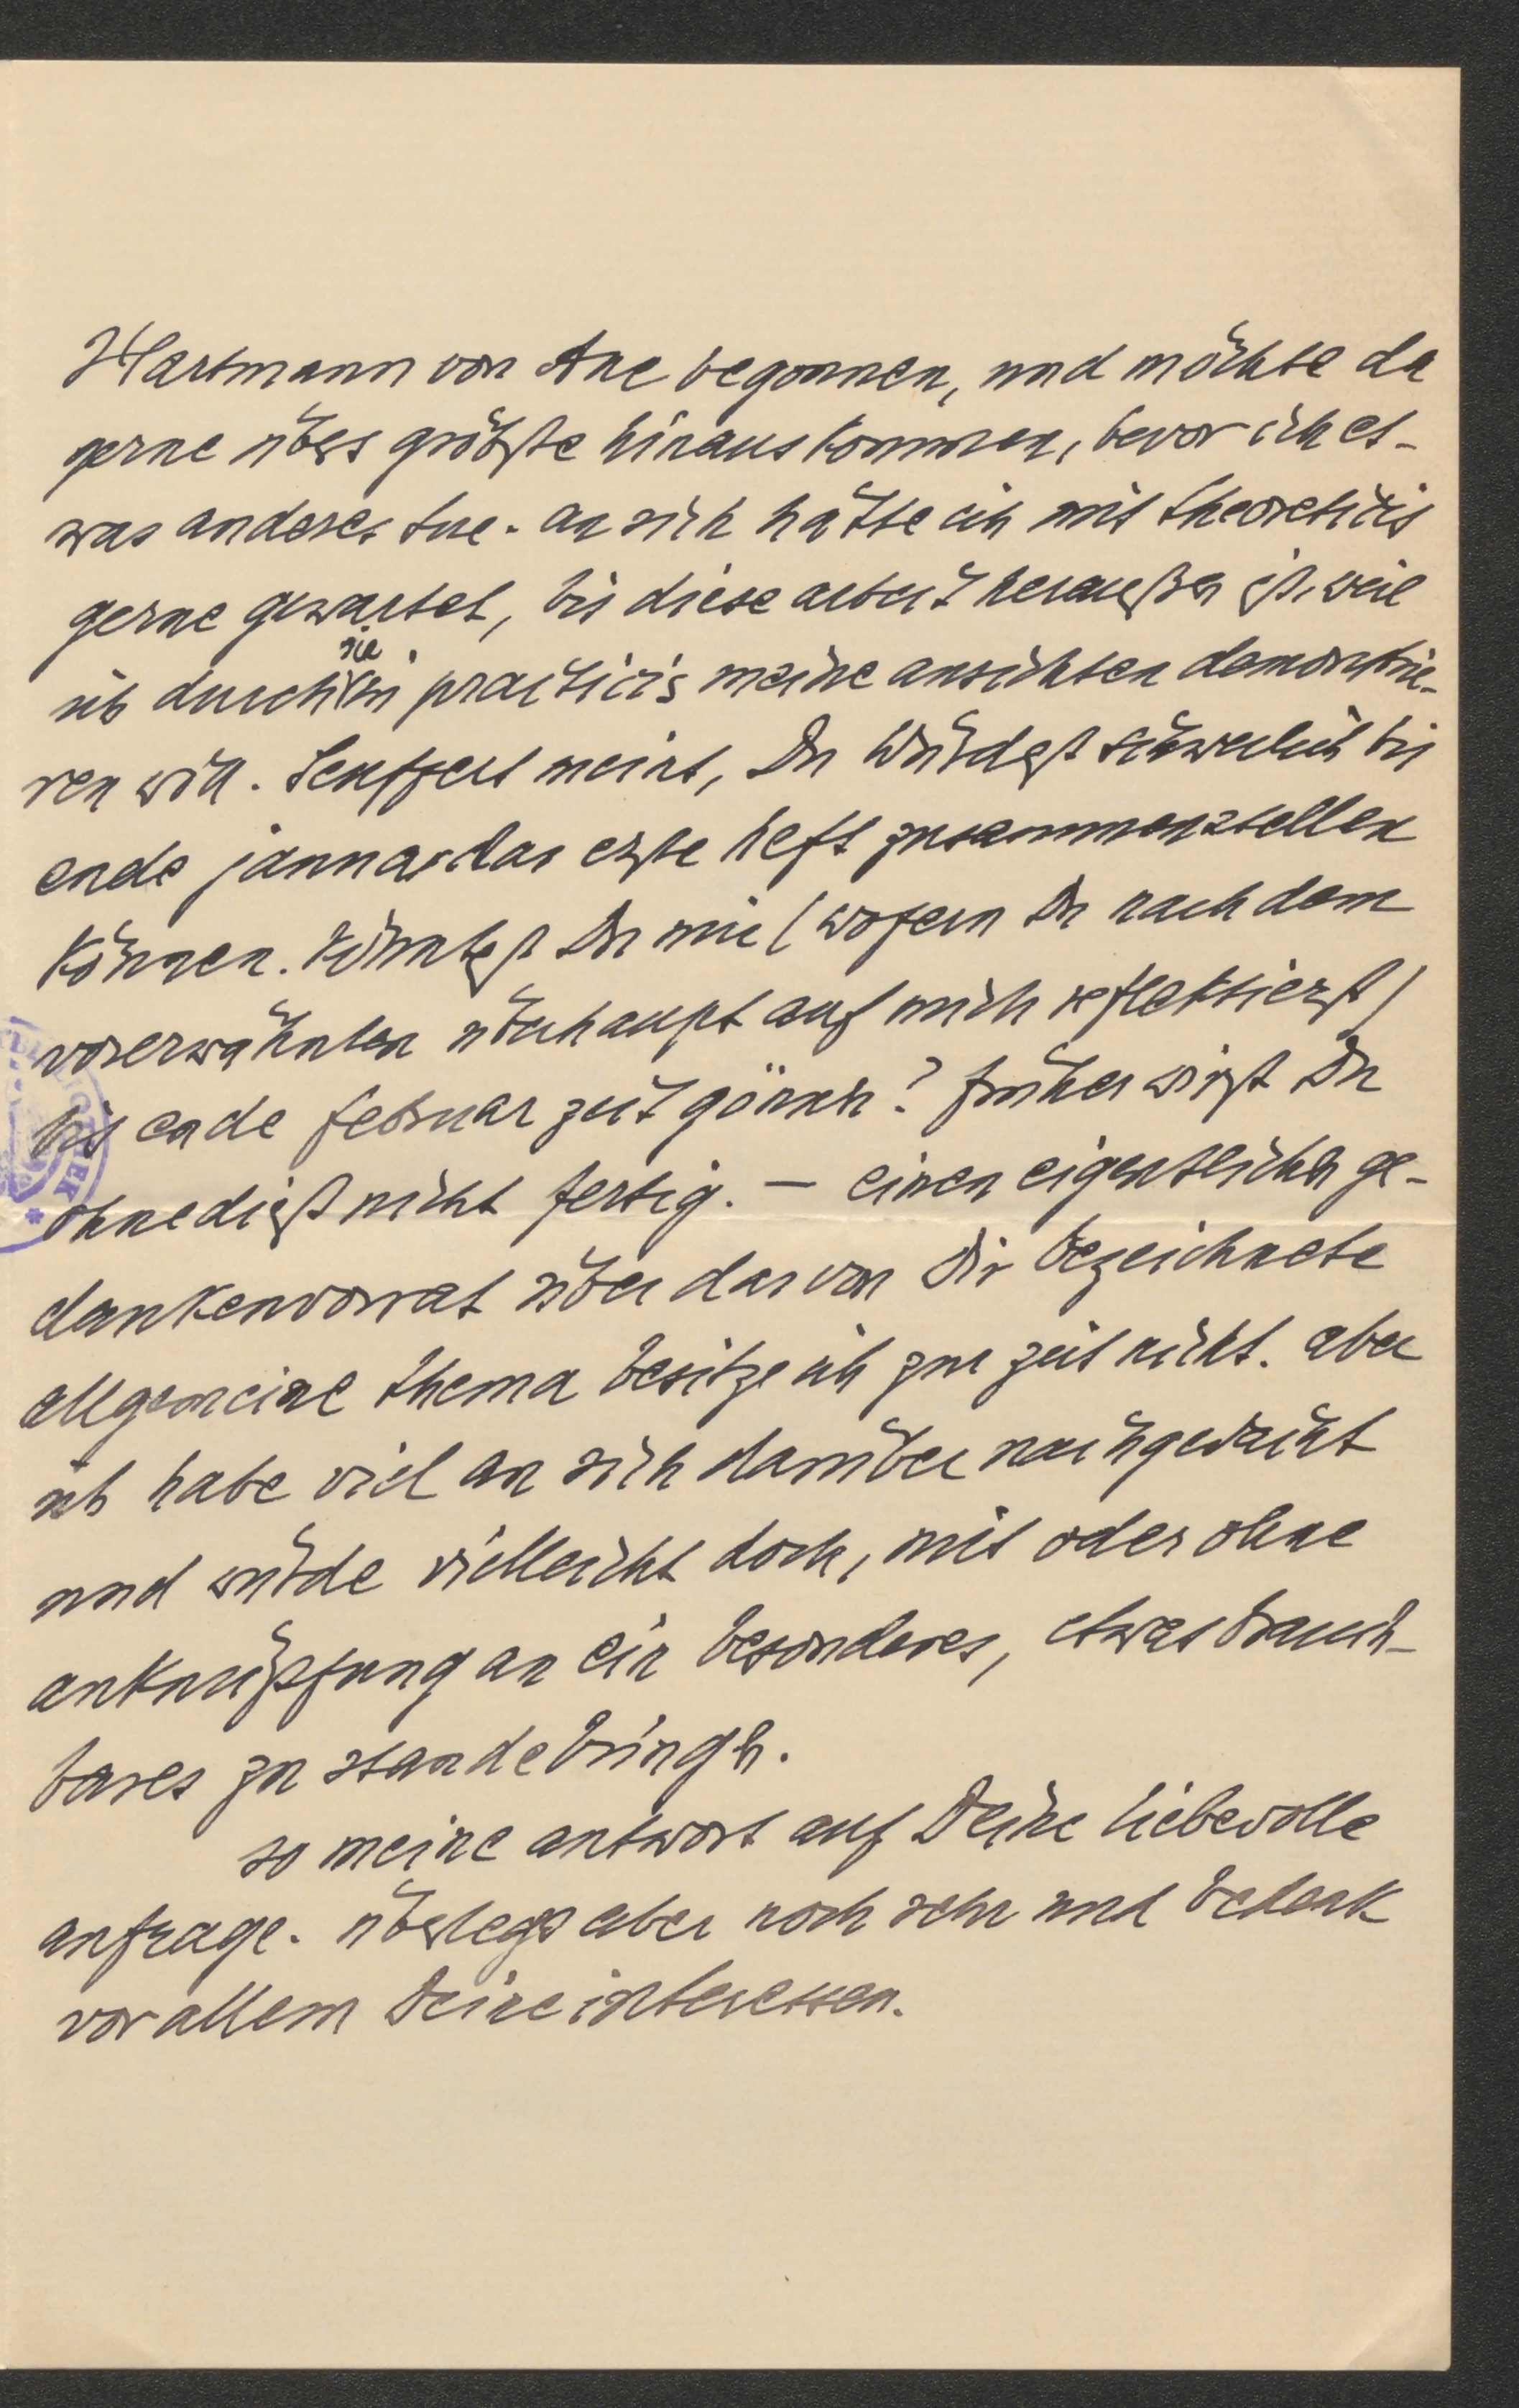 Hartmann von Aue begonnen, und möchte da
gerne übers gröbste hinaus kommen, bevor ich et-
was anderes tue. an sich hätte ich mit theoreticis
gerne gewartet, bis diese arbeit heraußen ist, weil
ich durch sie in practicis meine ansichten demonstrie-
ren will. Seuffert meint, Du würdest schwerlich bis
ende jannar das erste heft zusammenstellen
können. könntest Du mir (wofern Du nach dem
vorerwähnten überhaupt auf mich reflektierst)
bis ende februar zeit gönnen? früher wirst Du
ohnedieß nicht fertig. – einen eigentlichen ge-
dankenvorrat über das von Dir bezeichnete
allgemeine thema besitze ich zur zeit nicht. aber
ich habe viel an sich darüber nachgedacht
und würde vielleicht doch, mit oder ohne
anknüpfung an ein besonderes, etwas brauch-
bares zu stande bringen.
so meine antwort auf Deine liebevolle
anfrage. überlegs aber noch sehr und bedenk
vor allem Deine interessen.